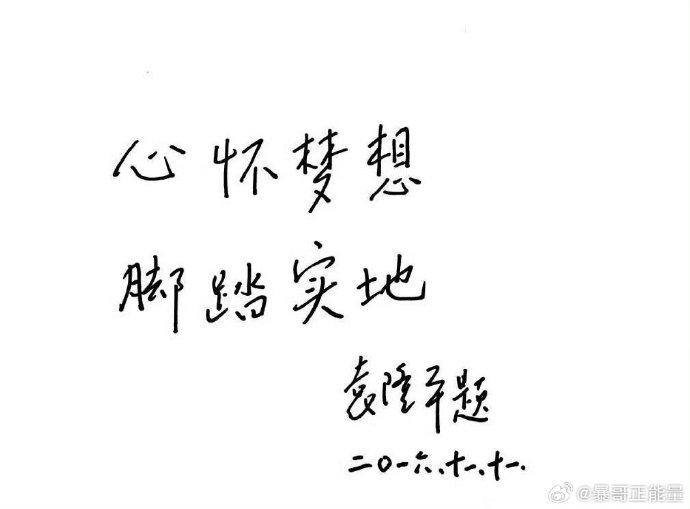 心怀梦想
脚踏实地
袁隆平题
二〇一六.十一.十一.
@暴哥正能量